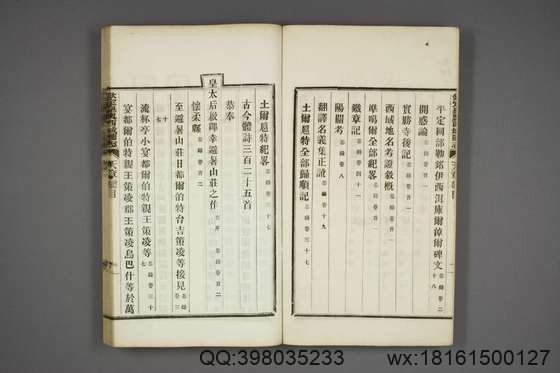 平定回部勒銘伊西洱庫爾淖爾碑文 恭錄卷二十八
開惑論
實勝寺後記
西域地名考證敘概
準噶爾全部紀略
鐵章記
陽關考
翻譯名義集正訛 恭錄卷十九
土爾扈特全部歸順記 恭錄卷三十七
土爾扈特紀略 恭錄卷三十七
古今體詩三百二十五首
恭奉
皇太后啟蹕幸避暑山莊之作
懷柔縣
至避暑山莊日都爾伯特台吉策凌等接見
流杯亭小宴都爾伯特親王策凌等
宴都爾伯特親王策凌郡王策凌烏巴什等於萬
QQ:398035233
wx:18161500127